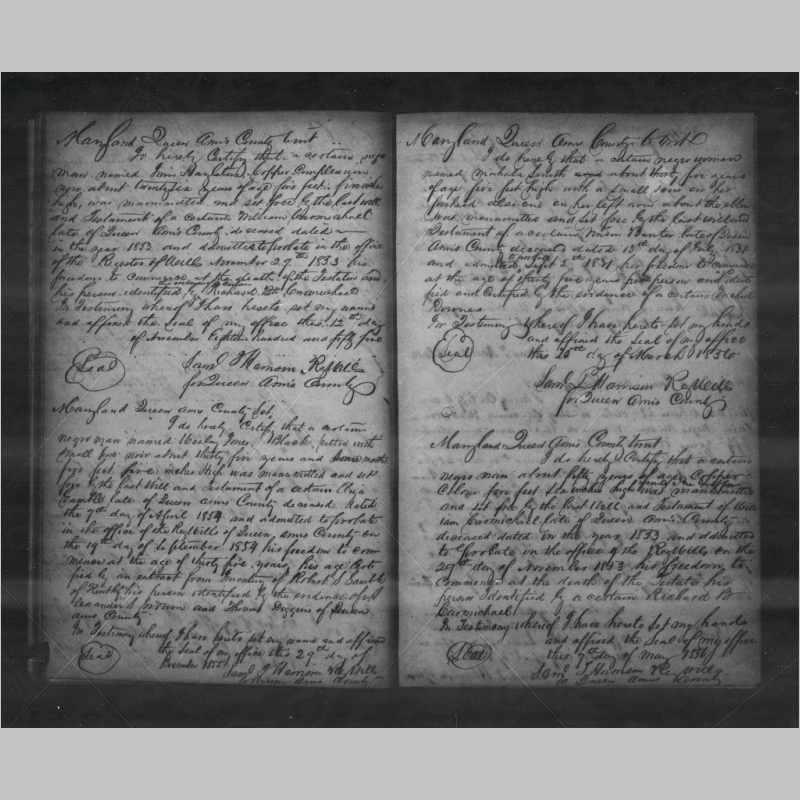 Maryland Queen Ann's County to wit
I do hereby Certify that a certain negro
man named James copper Complexion
age about twenty six years of age five feet inches
high, was manumitted and set free by the last will
and Testament of a certain William Carmichael
late of Queen Ann's County deceased dated
in the year 1853 and admitted to probate in the office
of the Register of Wills November 29th 1853 his
freedom to commence at the death of the Testators
his person identified by Richard B Carmichael
In Testimony whereof I have hereto set my name
and affixed the Seal of my office this 12th day
of November Eighteen hundred and fifty five
Seal
Saml T Harrison Reg Wills
for Queen Ann's County
Maryland Queen Anns County Sct,
I do hereby Certify that a certain
negro man named Wesley Jones, Black, pitted with
Small pox now about thirty five years and
five feet five inches High was manumitted and set
free by the last Will and Testament of a certain
late of Queen Anns County deceased dated
the 7th day of April 1854 and admitted to probate
in the office of the Reg Wills of Queen Anns County on
the 19th day of September 1854 his freedom to com
mence at the age of thirty five years, his age
by an extract from Inventory of Robert
his person identified by the evidence of
and Diggins of Queen
Anns County
In Testimony whereof I have hereto set my name and affixed
the Seal of my office this 29th day of
December 1855
Seal
Saml T Harrison Reg Wills
for Queen Anns County
Maryland, Queen Anns County to wit
I do hereby that a certain negro woman
named Smith aged about thirty five years
of age five feet high with a small scar on her
forehead also one on her left arm about the elbow
was manumitted and set free by the last will and
Testament of a certain late of Queen
Anns County deceased dated 13th day of July 1831
and admitted to probate Sept 5th 1831 her freedom to commence
at the age of thirty five years her person identi
fied and Certified by the evidence of a certain
Downes
In Testimony whereof I have hereto set my hand
and affixed the seal of my office
this 25th day of March 1856
Seal
Saml T Harrison Reg Wills
for Queen Ann's County
Maryland Queen Ann's County to wit
I do hereby Certify that a certain
negro man about fifty years of age Copper
Color five feet inches high was manumitted
and set free by the last Will and Testament of Will
iam Carmichael late of Queen Ann's County
deceased dated in the year 1853 and admitted
to probate in the office of the Reg Wills on the
29th day of November 1853 his freedom to
Commence at the death of the Testator his
person Identified by a certain Richard B
Carmichael
In Testimony whereof I have hereto set my hand
and affixed the Seal of my office
this 7th day of May 1856
Seal
Saml T Harrison Reg Wills
for Queen Anns County